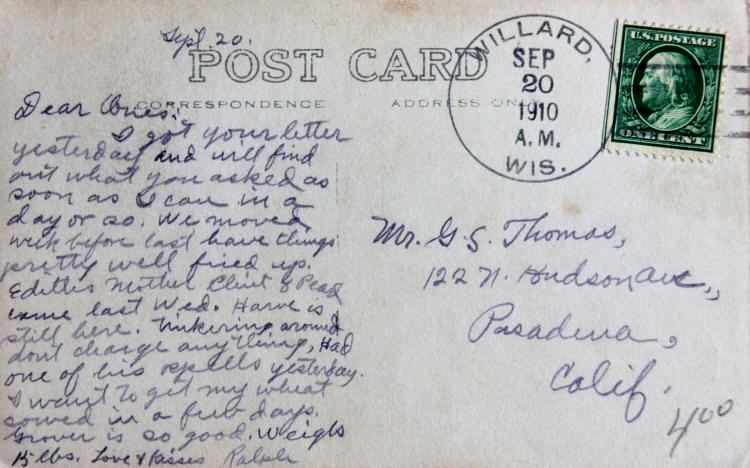 Sept. 20.
POST CARD
CORRESPONDENCE
ADDRESS ONLY
WILLARD,
SEP
20
1910
A.M.
WIS.
U.S. POSTAGE
ONE CENT
Dear Ones:
I got your letter
yesterday and will find
out what you asked as
soon as I can in a
day or so. We moved
week before last have things
pretty well fixed up.
Edith's Mother Clint &
came last Wed. Harve is
still here. Tinkering around
dont charge anything, Had
one of his spells yesterday.
I want to get my wheat
sowed in a few days.
Grover is so good. Weighs
15 lbs. Love & Kisses Ralph
Mr. G. S. Thomas,
122 N. Hudson Ave.,
Pasadena,
Calif.
4 00